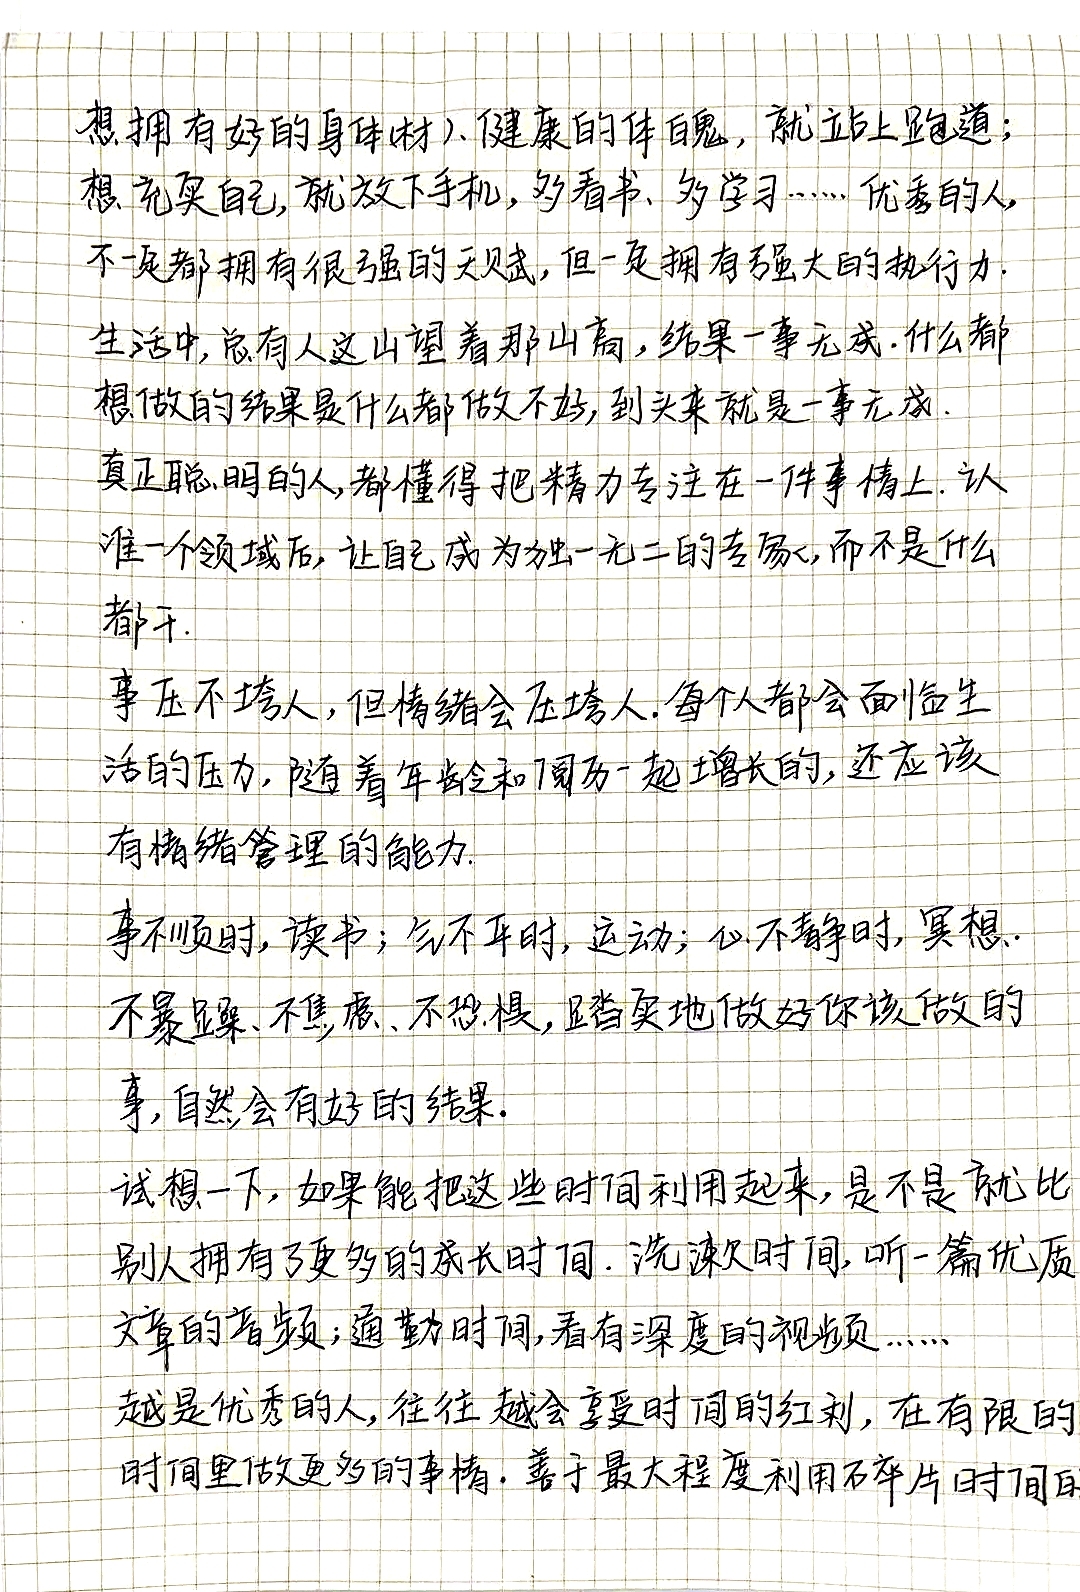 想拥有好的身体(材)、健康的体魄，就站上跑道；
想充实自己，就放下手机，多看书、多学习……优秀的人，
不一定都拥有很强的天赋，但一定拥有强大的执行力.
生活中，总有人这山望着那山高，结果一事无成.什么都
想做的结果是什么都做不好，到头来就是一事无成.
真正聪明的人，都懂得把精力专注在一件事情上.认
准一个领域后，让自己成为独一无二的专家，而不是什么
都干.
事压不垮人，但情绪会压垮人.每个人都会面临生
活的压力，随着年龄和阅历一起增长的，还应该
有情绪管理的能力.
事不顺时，读书；气不平时，运动；心不静时，冥想.
不暴躁、不焦虑、不恐惧，踏实地做好你该做的
事，自然会有好的结果.
试想一下，如果能把这些时间利用起来，是不是就比
别人拥有了更多的成长时间.洗漱时间，听一篇优质
文章的音频；通勤时间，看有深度的视频……
越是优秀的人，往往越会享受时间的红利，在有限的
时间里做更多的事情.善于最大程度利用碎片时间的